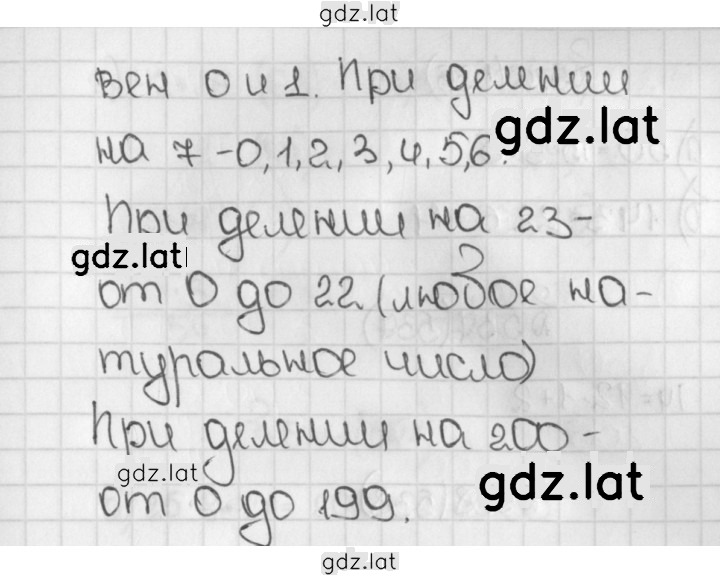 gdz.lat
вен 0 и 1. При делении
gdz.lat
на 7 - 0, 1, 2, 3, 4, 5, 6.
При делении на 23 -
gdz.lat
от 0 до 22 (любое на-
туральное число)
При делении на 200 -
gdz.lat
gdz.lat
от 0 до 199.
gdz.lat